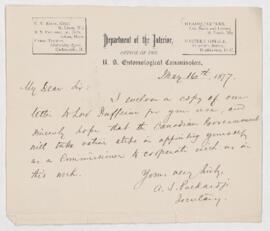 Department of the Interior,
OFFICE OF THE
U. S. Entomological Commission,
May 16th, 1877.
My Dear Sir:
I enclose a copy of our
letter to Lord Dufferin for your use, and
sincerely hope that the Canadian Government
will take action steps in appointing yourself
as a Commissioner to cooperate with us in
this work.
Yours very truly,
A. S. Packard Jr
Secretary.